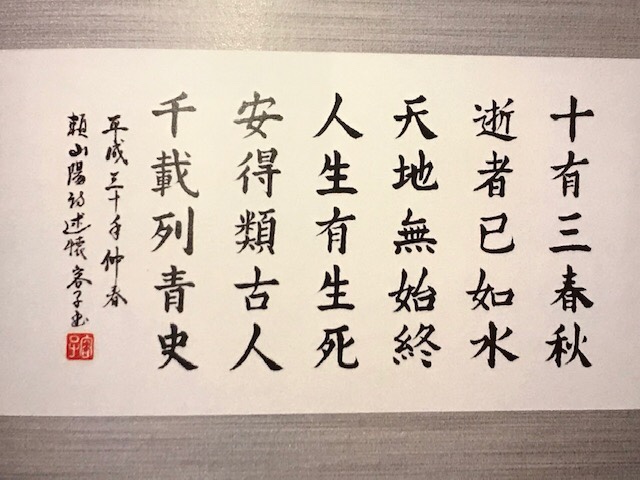 十有三春秋
逝者已如水
天地無始終
人生有生死
安得類古人
千載列青史
平成三十年仲春
頼山陽詩述懐容子書
容子